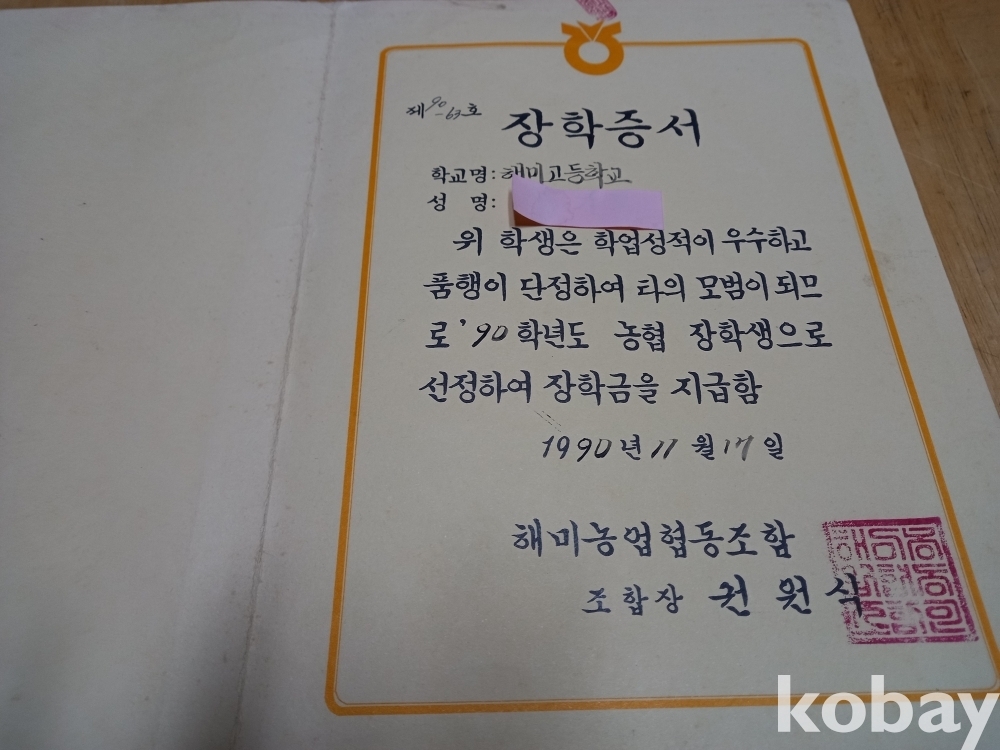 제 90-63호
장학증서
학교명: 해미고등학교
성 명:
위 학생은 학업성적이 우수하고
품행이 단정하여 타의 모범이 되므
로 '90 학년도 농협 장학생으로
선정하여 장학금을 지급함
1990년 11월 17일
해미농업협동조합
조합장 권원식
kobay